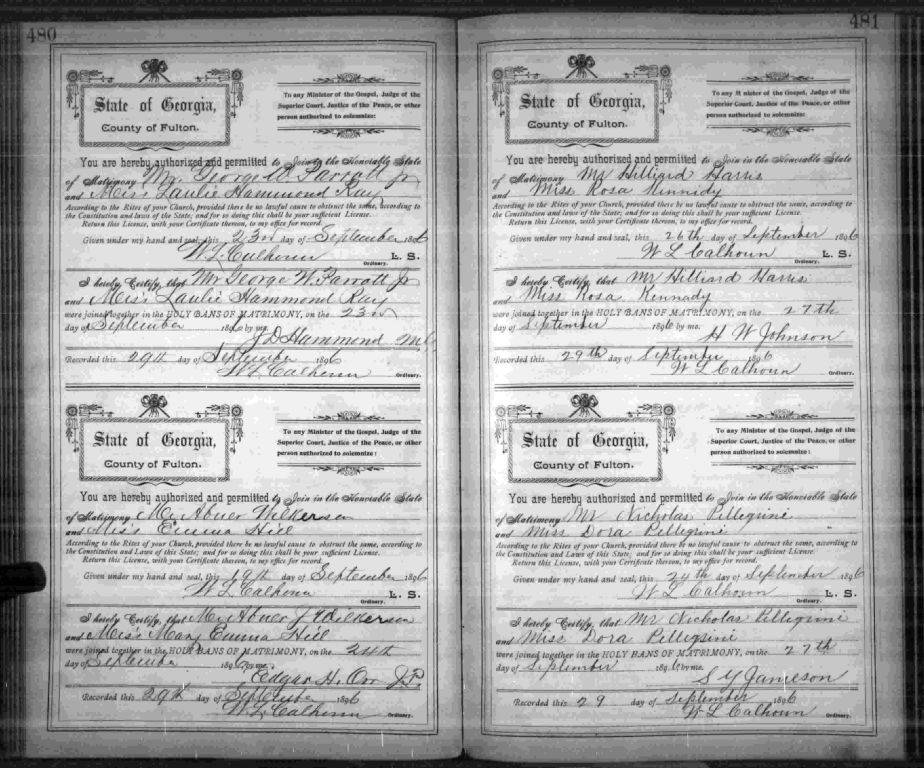 480
State of Georgia,
County of Fulton.
To any Minister of the Gospel, Judge of the
Superior Court, Justice of the Peace, or other
person authorized to solemnize:
You are hereby authorized and permitted to Join in the Honorable State
of Matrimony Mr. George W. Parrott Jr
and Miss Laulie Hammond Ray
According to the Rites of your Church, provided there be no lawful cause to obstruct the same, according to
the Constitution and laws of the State; and for so doing this shall be your sufficient License.
Return this License, with your Certificate thereon, to my office for record.
Given under my hand and seal, this 23rd day of September 1896
W. L. Calhoun L. S.
Ordinary.
I hereby Certify, that Mr George W. Parrott Jr
and Miss Laulie Hammond Ray
were joined together in the HOLY BANS OF MATRIMONY, on the 23rd
day of September 1896 by me.
J D Hammond
Recorded this 29th day of September 1896
W. L. Calhoun Ordinary.
State of Georgia,
County of Fulton.
To any Minister of the Gospel, Judge of the
Superior Court, Justice of the Peace, or other
person authorized to solemnize:
You are hereby authorized and permitted to Join in the Honorable State
of Matrimony Mr Abner Wilkerson
and Miss Emma Hill
According to the Rites of your Church, provided there be no lawful cause to obstruct the same, according to
the Constitution and Laws of this State; and for so doing this shall be your sufficient License.
Return this License, with your Certificate thereon, to my office for record.
Given under my hand and seal, this 19th day of September 1896
W. L. Calhoun L. S.
Ordinary.
I hereby Certify, that Mr Abner J Wilkerson
and Miss Mary Emma Hill
were joined together in the HOLY BANS OF MATRIMONY, on the 24th
day of September 1896 by me.
Edgar H. Orr J.P.
Recorded this 29th day of September 1896
W. L. Calhoun Ordinary.
481
State of Georgia,
County of Fulton.
To any Minister of the Gospel, Judge of the
Superior Court, Justice of the Peace, or other
person authorized to solemnize:
You are hereby authorized and permitted to Join in the Honorable State
of Matrimony Mr Hilliard Harris
and Miss Rosa Kennidy
According to the Rites of your Church, provided there be no lawful cause to obstruct the same, according to
the Constitution and laws of the State; and for so doing this shall be your sufficient License.
Return this License, with your Certificate thereon, to my office for record.
Given under my hand and seal, this 26th day of September 1896
W L Calhoun L. S.
Ordinary.
I hereby Certify, that Mr Hilliard Harris
and Miss Rosa Kennady
were joined together in the HOLY BANS OF MATRIMONY, on the 27th
day of September 1896 by me.
H W Johnson
Recorded this 29th day of September 1896
W L Calhoun Ordinary.
State of Georgia,
County of Fulton.
To any Minister of the Gospel, Judge of the
Superior Court, Justice of the Peace, or other
person authorized to solemnize:
You are hereby authorized and permitted to Join in the Honorable State
of Matrimony Mr Nicholas Pillegrini
and Miss Dora Pillegrini
According to the Rites of your Church, provided there be no lawful cause to obstruct the same, according to
the Constitution and Laws of this State; and for so doing this shall be your sufficient License.
Return this License, with your Certificate thereon, to my office for record.
Given under my hand and seal, this 24th day of September 1896
W L Calhoun L. S.
Ordinary.
I hereby Certify, that Mr Nicholas Pillegrini
and Miss Dora Pillegrini
were joined together in the HOLY BANS OF MATRIMONY, on the 27th
day of September 1896 by me.
S Y Jameson
Recorded this 29 day of September 1896
W L Calhoun Ordinary.